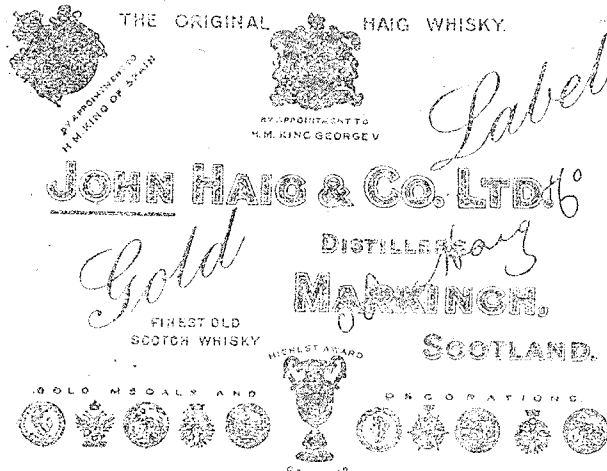 THE ORIGINAL HAIG WHISKY.
BY APPOINTMENT TO
H.M. KING OF SPAIN
BY APPOINTMENT TO
H.M. KING GEORGE V
Label
JOHN HAIG & CO. LTD.
Gold
DISTILLERS
Haig
MARKINCH,
FINEST OLD
SCOTCH WHISKY
SCOTLAND.
HIGHEST AWARD
GOLD MEDALS AND DECORATIONS.